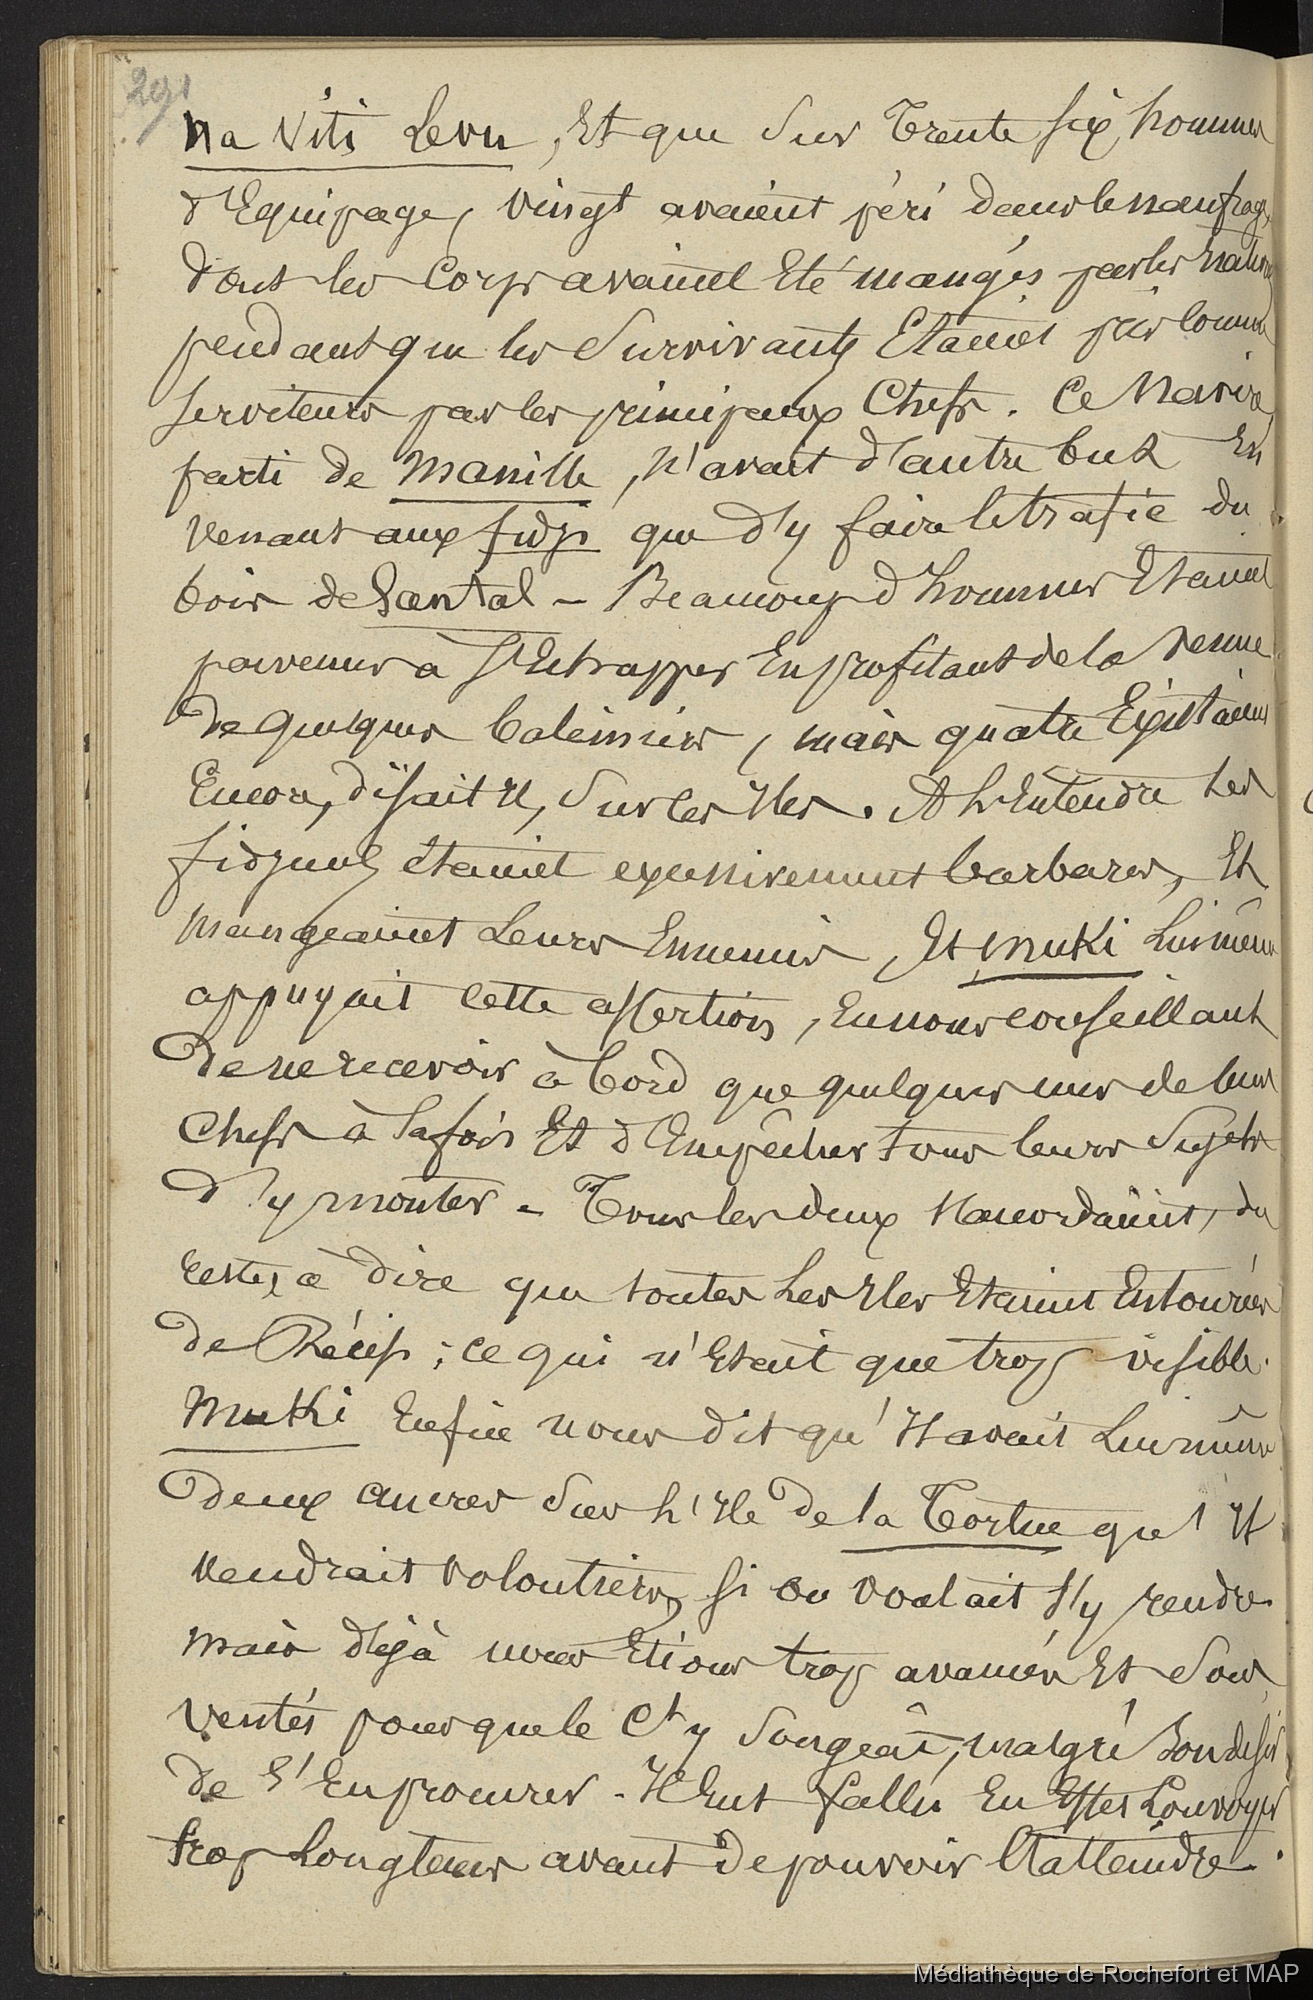 291
Na Viti Levu, Et que Sur Trente six hommes
d'Equipage, vingt avaient péri dans le naufrage,
dont les Corps avaient Eté mangés par les naturels
pendant que les Survivants Etaient pris comme
serviteurs par les principaux Chefs. Ce Navire
parti de Manille, n'avait d'autre but En
venant aux fidji que d'y faire le trafic du
bois de Santal - Beaucoup d'hommes Etaient
parvenus à s'Echapper En profitant de la venue
de quelques baleiniers, mais quatre Existaient
Encore, disait il, Sur les Iles. A l'Entendre Les
fidjiens étaient excessivement barbares, Et
mangeaient Leurs Ennemis, Et Muki Lui même
appuyait cette assertion, En nous conseillant
de ne recevoir à bord que quelques uns de leurs
Chefs à la fois Et d'Empêcher tous leurs Sujets
d'y monter - Tous les deux s'accordaient, du
reste, à dire que toutes Les Iles Etaient Entourées
de Récifs ; ce qui n'Etait que trop visible.
Muki Enfin nous dit qu'Il avait Lui même
deux ancres Sur l'Ile de la Tortue qu'Il
vendrait volontiers, si on voulait s'y rendre
mais déjà nous Etions trop avancés Et Sous
ventés pour que le Ct y Songeât, malgré Son désir
de s'En procurer - Il Eut fallu En Effet Louvoyer
trop Longtems avant de pouvoir l'atteindre.
Médiathèque de Rochefort et MAP